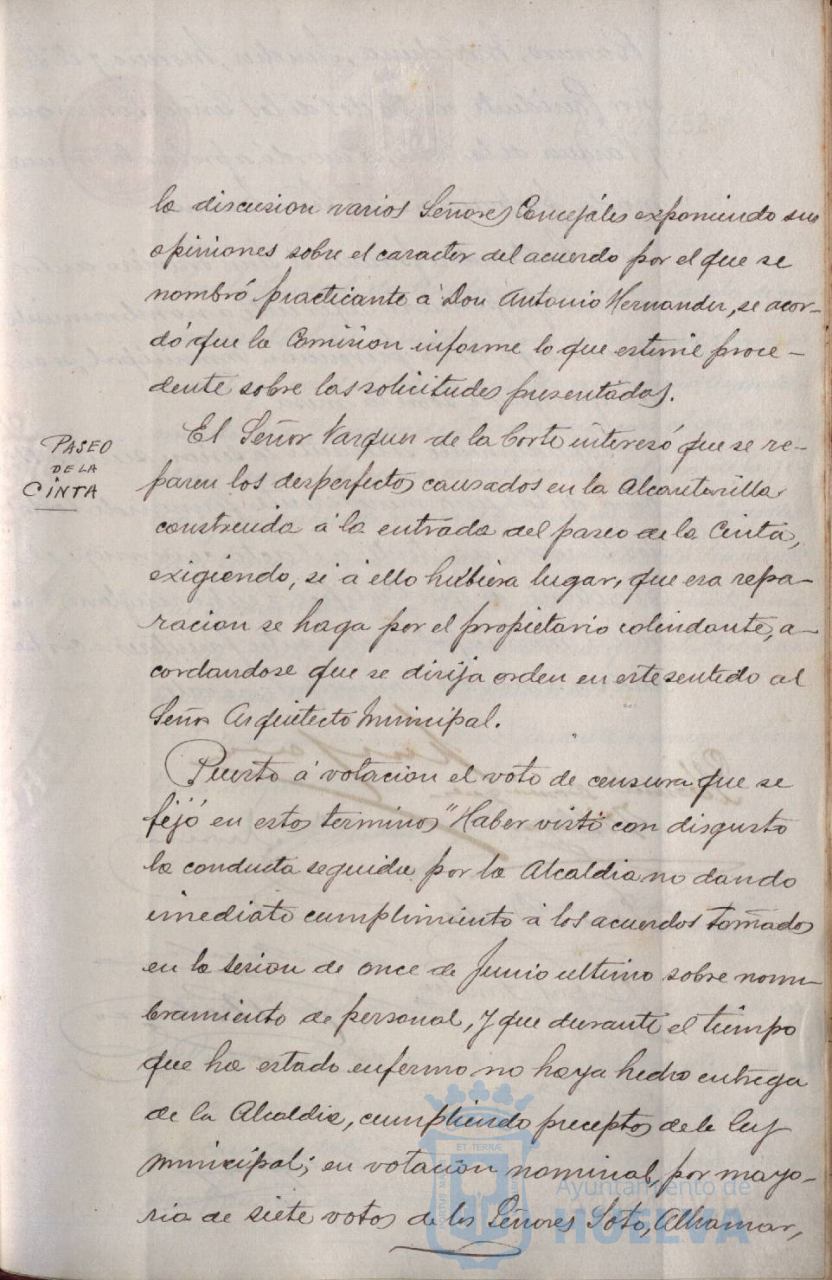 la discusion varios Señores Concejáles exponiendo sus
opiniones sobre el caracter del acuerdo por el que se
nombró practicante á Don Antonio Hernandez, se acor-
dó que la Comision informe lo que estime proce-
dente sobre las solicitudes presentadas.
PASEO
DE LA
CINTA
El Señor Vazquez de la Corte interesó que se re-
paren los desperfectos causados en la Alcantarilla
construida á la entrada del paseo de la Cinta,
exigiendo, si á ello hubiera lugar, que esa repa-
racion se haga por el propietario colindante, a-
cordandose que se dirija orden en este sentido al
Señor Arquitecto Municipal.
Puesto á votacion el voto de censura que se
fijó en estos terminos "Haber visto con disgusto
la conducta seguida por la Alcaldia no dando
imediato cumplimiento á los acuerdos tomados
en la sesion de once de Junio ultimo sobre nom-
bramiento de personal, y que durante el tiempo
que ha estado enfermo no haya hecho entrega
de la Alcaldia, cumpliendo preceptos de la ley
Municipal; en votacion nominal, por mayo-
ria de siete votos de los Señores Soto, Alhamar,
Ayuntamiento de
HUELVA